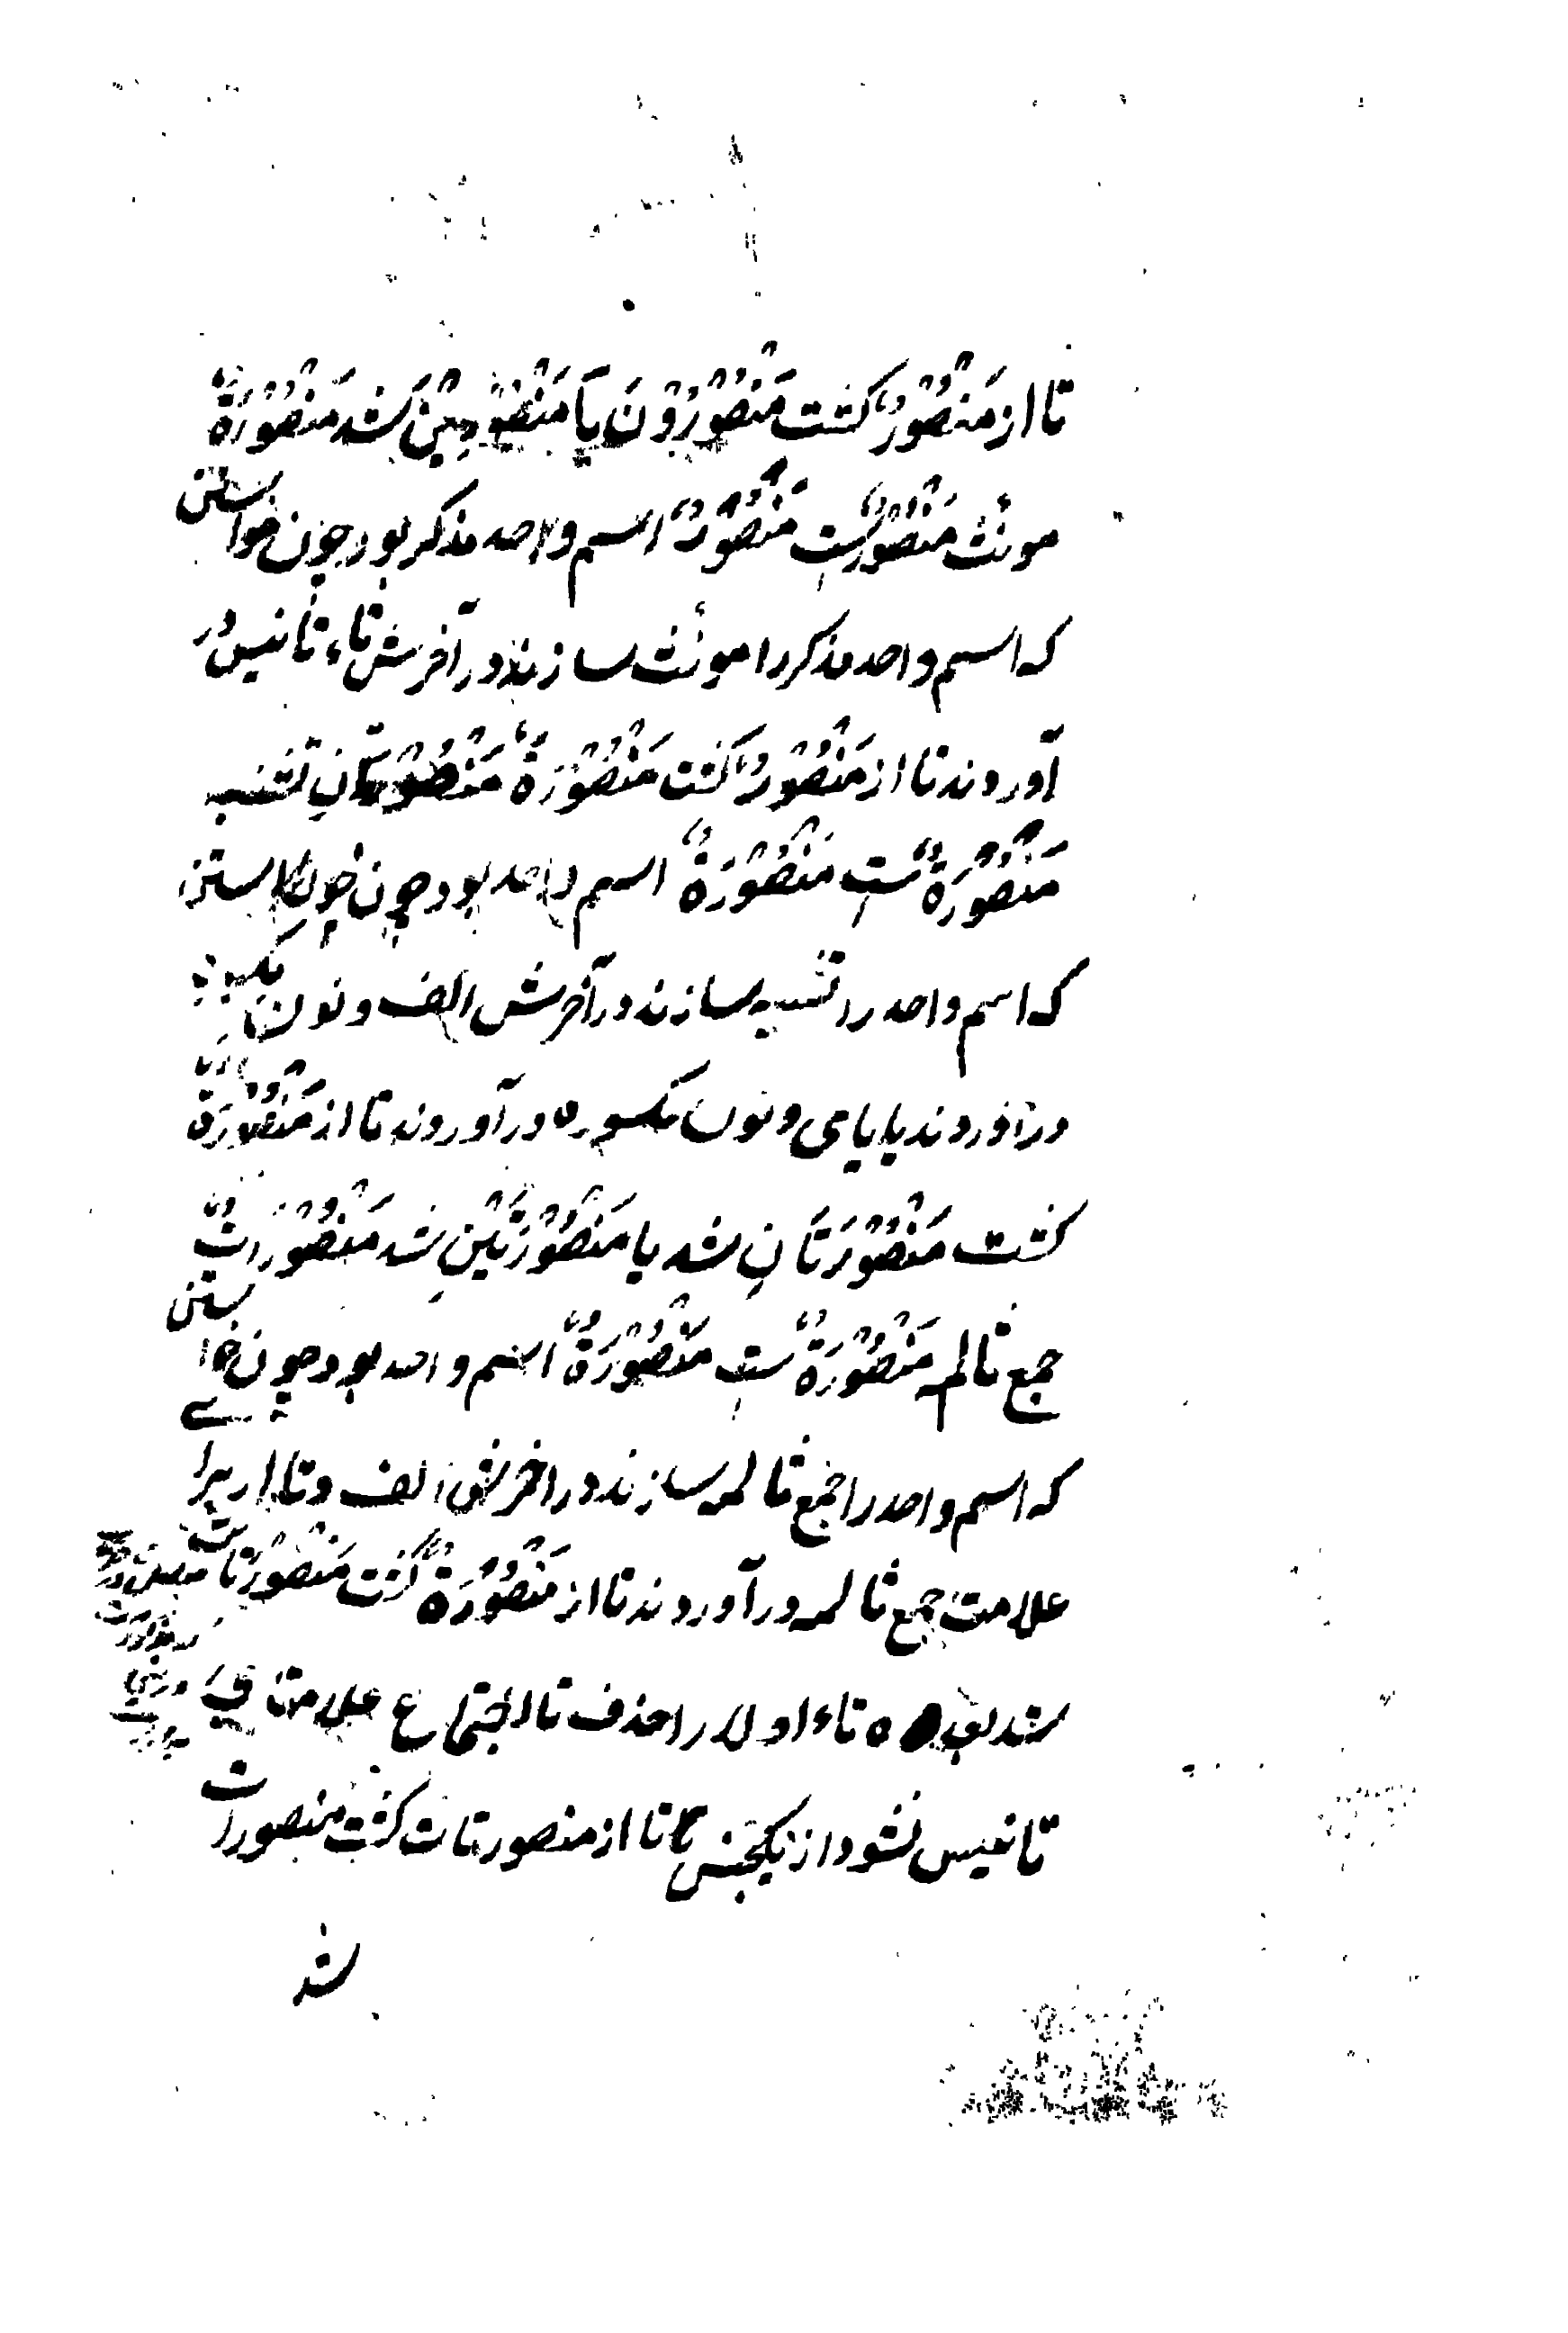 تا از مَنْصُوْرٌ گشت مَنْصُوْرُوْنَ یَا مَنْصُوْرِیْنَ شد مَنْصُوْرَةٌ
مونث مَنْصُوْرٌ ست مَنْصُوْرٌ اسم واحد مذکر بود چون خواستن
که اسم واحد مذکر را مونث سازند در آخرش تاء تانیس در
آوردند تا از مَنْصُوْرٌ گشت مَنْصُوْرَةٌ مَنْصُوْرَتَانِ تثنیه
مَنْصُوْرَةٌ ست مَنْصُوْرَةٌ اسم واحد بود چون خواستن
که اسم واحد را تثنیه سازند در آخرش الف و نون مکسوره
در آوردند یا یای و نون مکسوره در آوردند تا از مَنْصُوْرَةٌ
گشت مَنْصُوْرَتَانِ شد یا مَنْصُوْرَتَيْنِ شد مَنْصُوْرَاتٌ
جمع ثالمه مَنْصُوْرَةٌ ست مَنْصُوْرَةٌ اسم واحد بود چون خواستن
که اسم واحد را جمع ثالمه سازند در اخرش الف و تا از برای
علامت جمع ثالمه در آوردند تا از مَنْصُوْرَةٌ گشت مَنْصُوْرَتَات
شد بعده تاء اولا را حذف تا اجتماع علامت
تانیس نشود از یکجنس تا از منصورتات گشت منصورات
شد